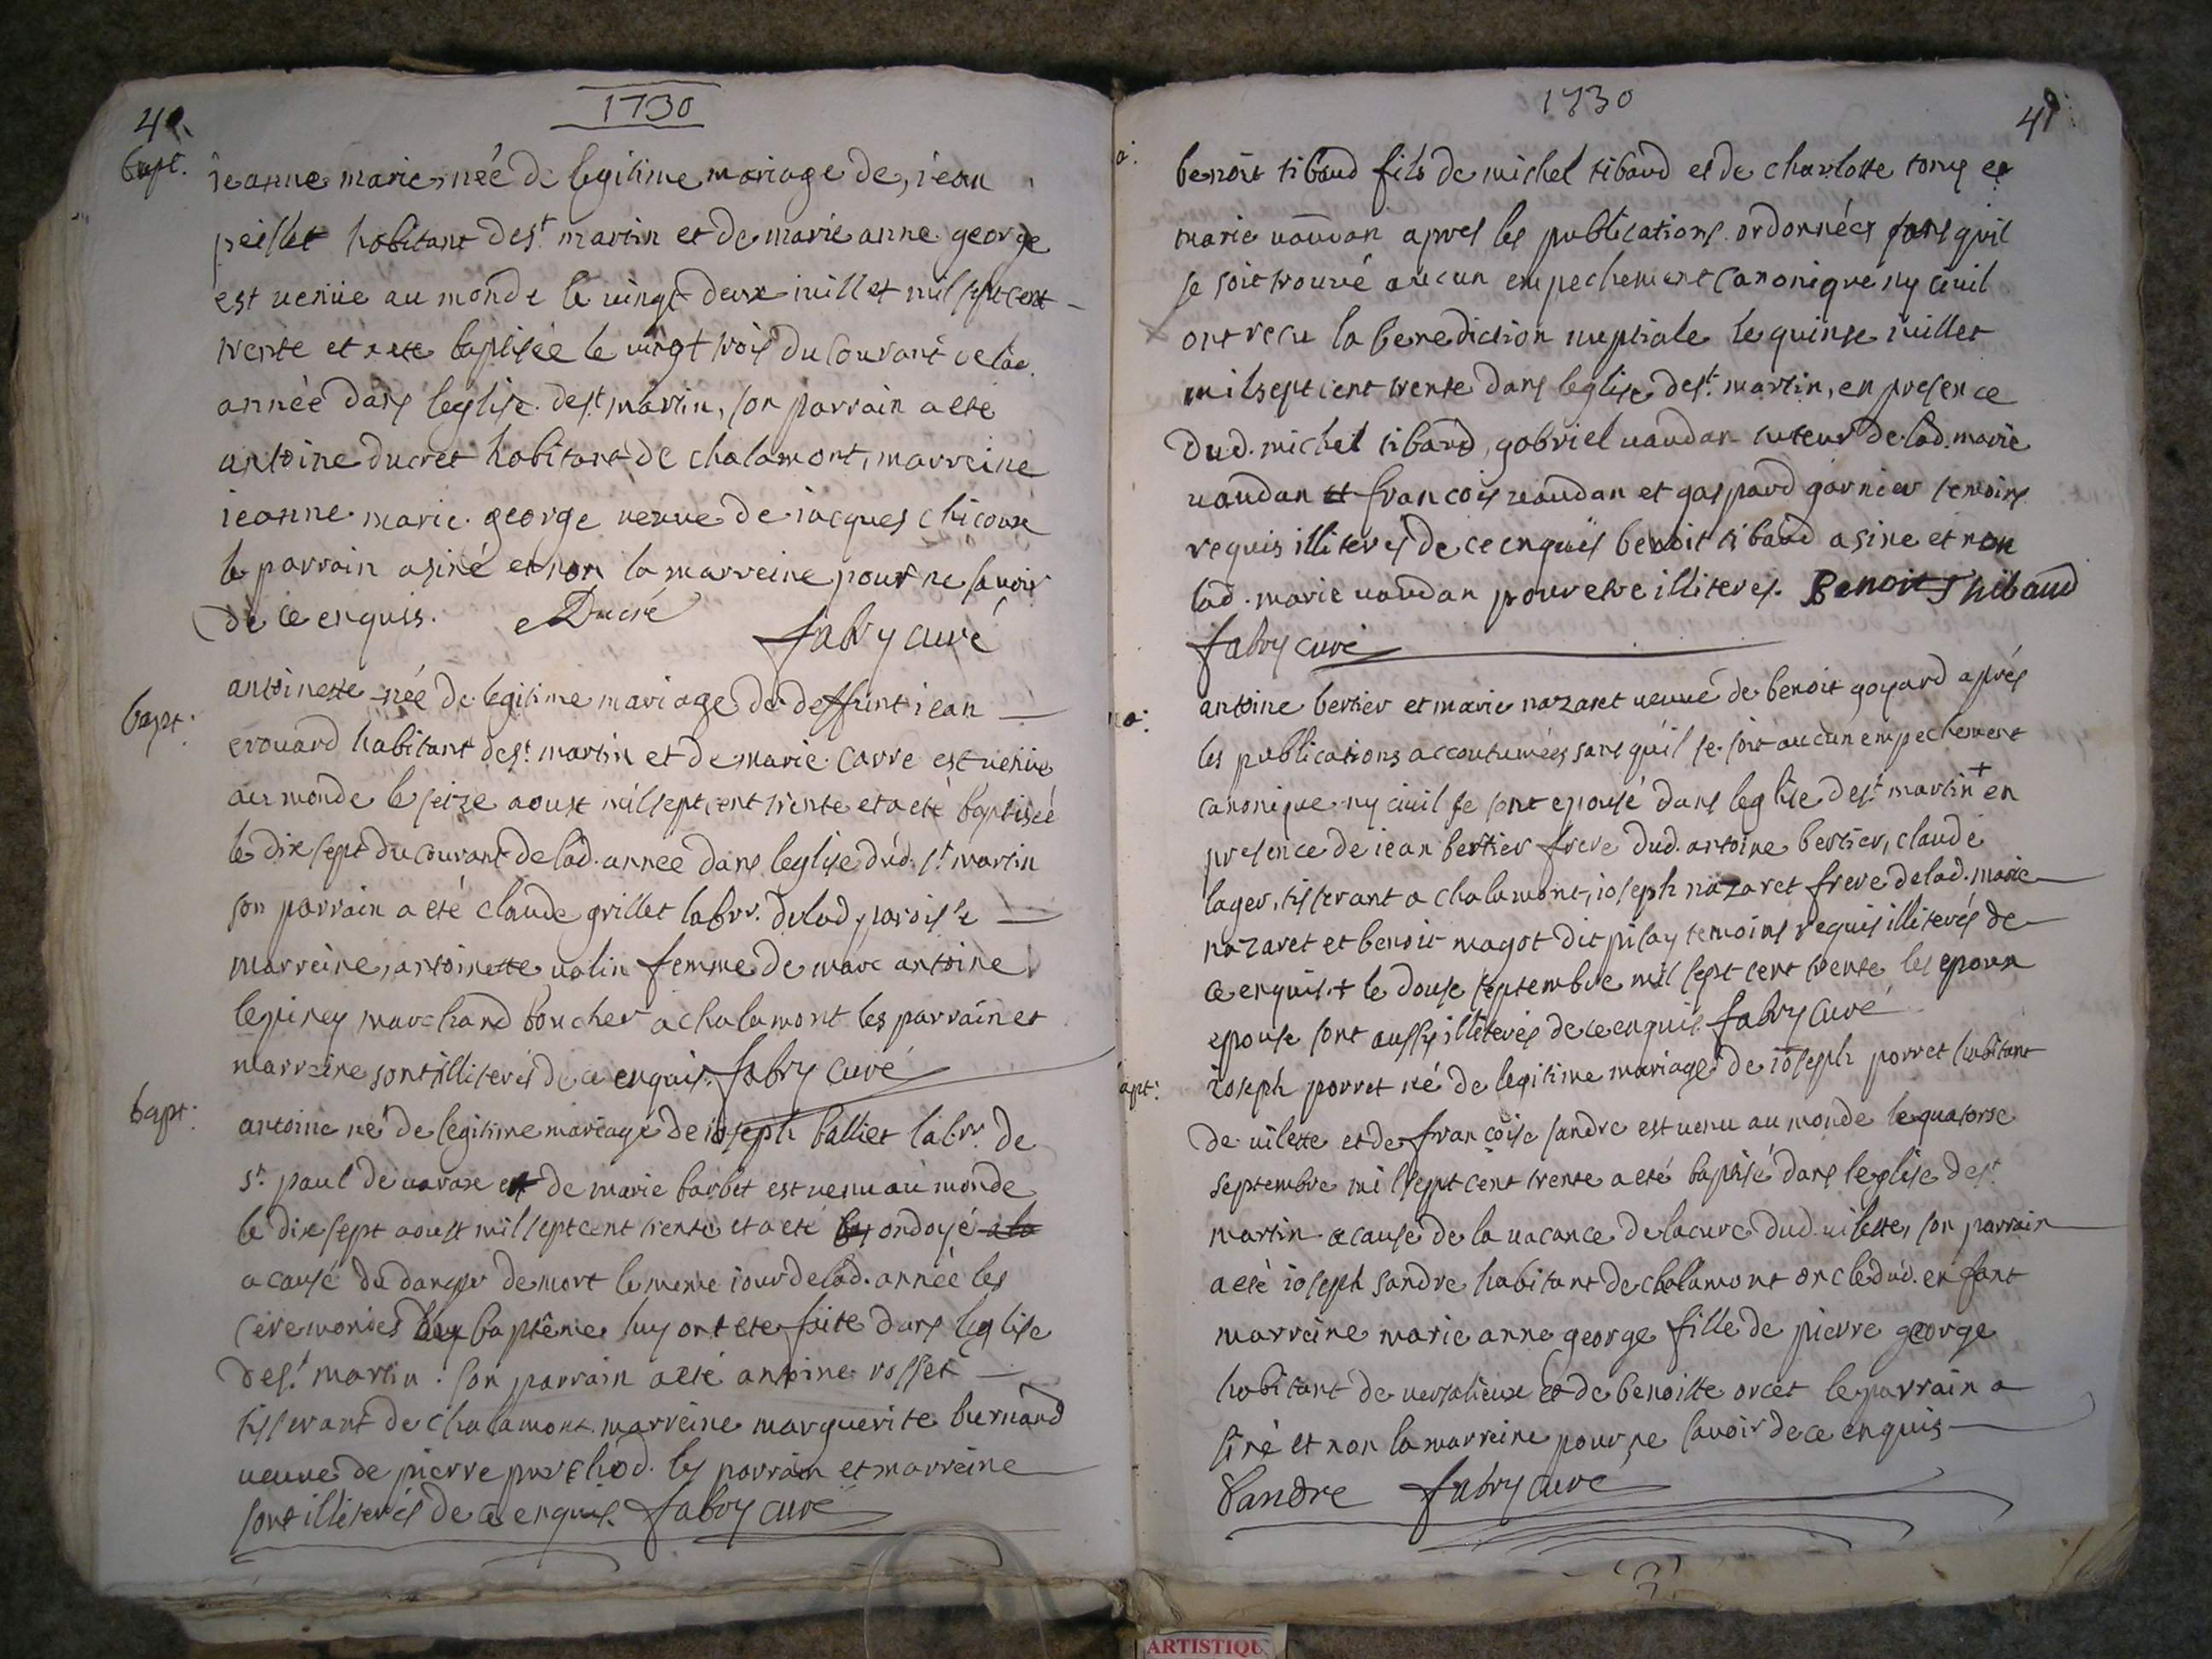 40.
1730
bapt.
jeanne marie née de legitime mariage de jean
peillet habitant de st martin et de marie anne george
est venüe au monde le vingt deux juillet mil sept cent
trente et a ete baptisée le vingt trois du courant de lad.
année dans leglise de st martin, son parrain a ete
antoine ducret habitant de chalamont, marreine
jeanne marie george veuve de jacques chicoux
le parrain a siné et non la marreine pour ne savoir
de ce enquis. Ducré
fabry curé
bapt:
antoinette née de legitime mariage de deffunt jean
erouard habitant de st martin et de marie carre est venüe
au monde le seize aoust mil sept cent trente et a eté baptisée
le dix sept du courant de lad. année dans leglise dud. st martin
son parrain a eté claude grillet labr. de lad paroisse
marreine, antoinette valin femme de marc antoine
lepiney marchand boucher a chalamont les parrain et
marreine sont illiterés de ce enquis. fabry curé
bapt:
antoine né de legitime mariage de joseph balliet labr. de
st paul de varax et de marie barbet est venu au monde
le dix sept aoust mil sept cent trente et a eté ondoyé a la
a cause du danger de mort le meme jour de lad. année les
ceremonies baptême luy ont ete faite dans leglise
de st martin. son parrain a eté antoine rosset
tisserant de chalamont marreine marguerite burnand
veuve de pierre prechod. les parrain et marreine
sont illiterés de ce enquis. fabry curé
1730
41
benoit tibaud fils de michel tibaud et de charlotte tony et
marie vaudan apres les publications ordonnées sans quil
se soit trouvé aucun empechement canonique ny civil
ont recu la benediction nuptiale le quinse juillet
mil sept cent trente dans leglise de st martin, en presence
dud. michel tibaud, gabriel vaudan tuteur de lad. marie
vaudan et francois vaudan et gaspard garnier temoins
requis illiterés de ce enquis benoit tibaud a sine et non
lad. marie vaudan pour etre illiteres. Benoit Thibaud
fabry curé
antoine bertier et marie nazaret veuve de benoit goyard aprés
les publications accoutumées sans quil se soit aucun empechement
canonique ny civil se sont epousé dans leglise de st martin + en
presence de jean bertier frere dud. antoine bertier, claude
lager, tisserant a chalamont, joseph nazaret frere de lad. marie
nazaret et benoit magot dit pilay temoins requis illiterés de
ce enquis. + le douse septembre mil sept cent trente les epoux
epouse sont aussy illiterés de ce enquis fabry curé
apt:
joseph porret né de legitime mariage de joseph porret habitant
de vilette et de francoise sandre est venu au monde le quatorse
septembre mil sept cent trente a eté baptisé dans leglise de st
martin a cause de la vacance de la cure dud. vilette, son parrain
a eté joseph sandre habitant de chalamont oncle dud. enfant
marreine marie anne george fille de pierre george
habitant de versalieux et de benoitte orcet le parrain a
siné et non la marreine pour ne savoir de ce enquis
Sandre fabry curé
ARTISTIQU